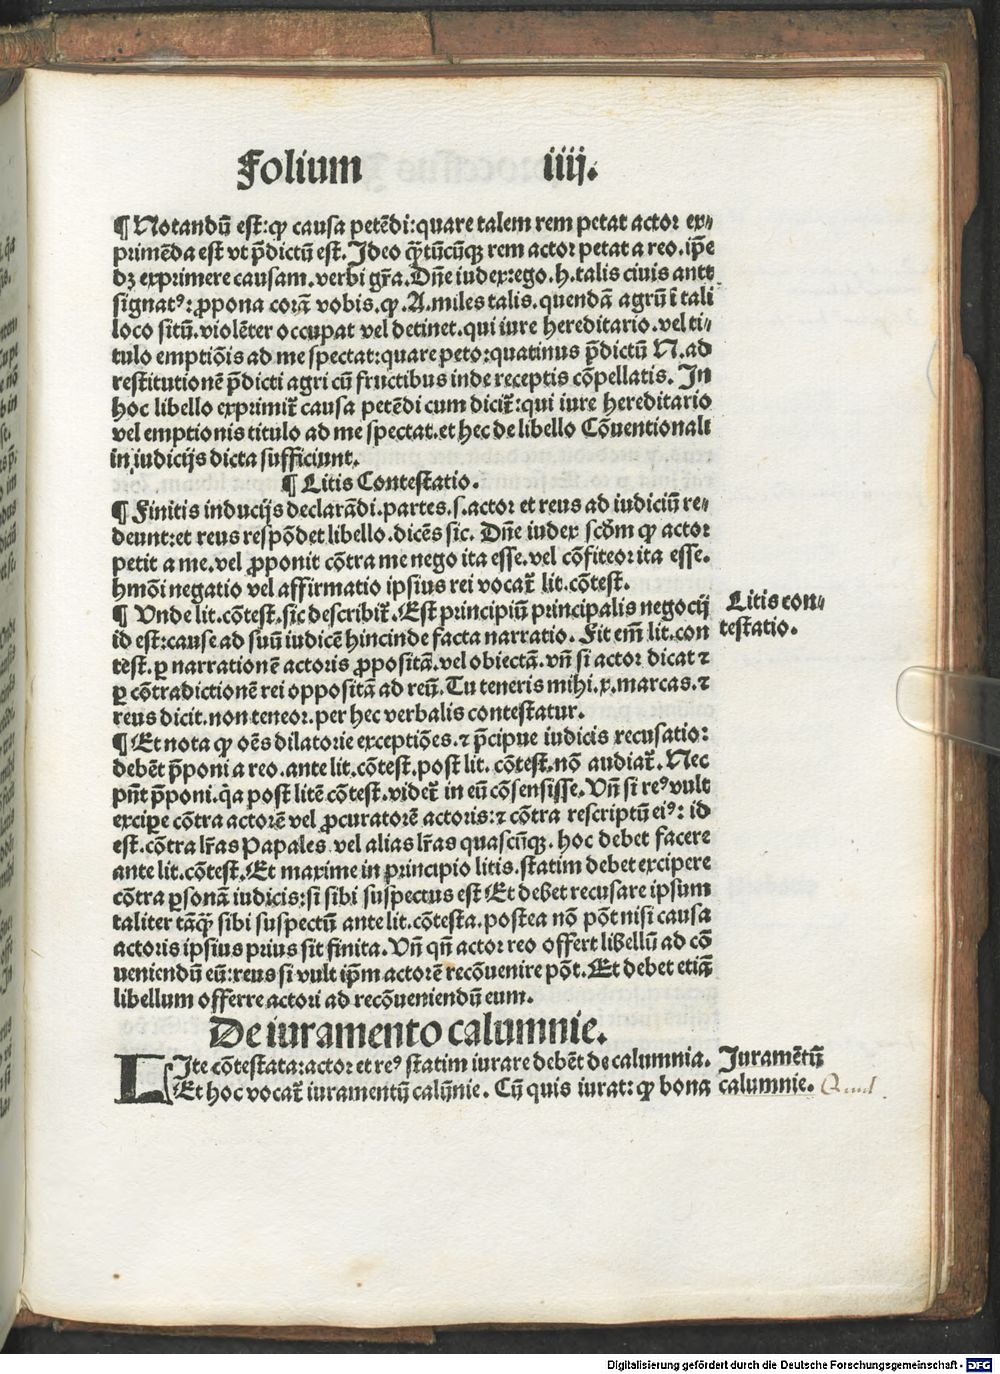 Folium iiij.
¶ Notandū est: ꝙ causa petēdi: quare talem rem petat actor ex⸗
primēda est vt p̄dictū est. Ideo qͣ̄tūcūqꝫ rem actor petat a reo. ip̄e
dꝫ exprimere causam. verbi gr̄a. Dn̄e iudex: ego. h. talis ciuis ante
signatꝰ: ꝓpona corā vobis. ꝙ. A. miles talis. quendā agrū ī tali
loco sitū. violēter occupat vel detinet. qui iure hereditario. vel ti⸗
tulo emptiōis ad me spectat: quare peto: quatinus p̄dictū N. ad
restitutionē p̄dicti agri cū fructibus inde receptis cōpellatis. In
hoc libello exprimit̄ causa petēdi cum dicit̄: qui iure hereditario
vel emptionis titulo ad me spectat. et hec de libello Cōuentionali
in iudicijs dicta sufficiunt.
¶ Litis Contestatio.
¶ Finitis inducijs declarādi. partes. s. actor et reus ad iudiciū re⸗
deunt: et reus respōdet libello. dicēs sic. Dn̄e iudex scd̄m ꝙ actor
petit a me. vel ꝓponit cōtra me nego ita esse. vel cōfiteor ita esse.
hmōi negatio vel affirmatio ipsius rei vocat̄ lit. cōtest.
¶ Vnde lit. cōtest. sic describit̄. Est principiū principalis negocij
id est: cause ad suū iudicē hincinde facta narratio. Fit em̄ lit. con
test. ꝑ narrationē actoris ꝓpositā. vel obiectā. vn̄ si actor dicat ⁊
ꝑ cōtradictionē rei oppositā ad reū. Tu teneris mihi. x. marcas. ⁊
reus dicit. non teneor. per hec verbalis contestatur.
Litis con⸗
testatio.
¶ Et nota ꝙ oēs dilatorie exceptiōes. ⁊ p̄cipue iudicis recusatio:
debēt p̄poni a reo. ante lit. cōtest. post lit. cōtest. nō audiat̄. Nec
pn̄t p̄poni. qͣ post litē cōtest. videt̄ in eū cōsensisse. Vn̄ si reꝰ vult
excipe cōtra actorē vel ꝓcuratorē actoris: ⁊ cōtra rescriptū eiꝰ: id
est. cōtra lr̄as Papales vel alias lr̄as quascūqꝫ. hoc debet facere
ante lit. cōtest. Et maxime in principio litis. statim debet excipere
cōtra ꝑsonā iudicis: si sibi suspectus est Et debet recusare ipsum
taliter tāqͣ̄ sibi suspectū ante lit. cōtesta. postea nō pōt nisi causa
actoris ipsius prius sit finita. Vn̄ qn̄ actor reo offert libellū ad cō
ueniendū eū: reus si vult ip̄m actorē recōuenire pōt. Et debet etiā
libellum offerre actori ad recōueniendū eum.
De iuramento calumnie.
LIte cōtestata: actor et reꝰ statim iurare debēt de calumnia.
Et hoc vocat̄ iuramentū calūnie. Cū quis iurat: ꝙ bona
Juramētū
calumnie.